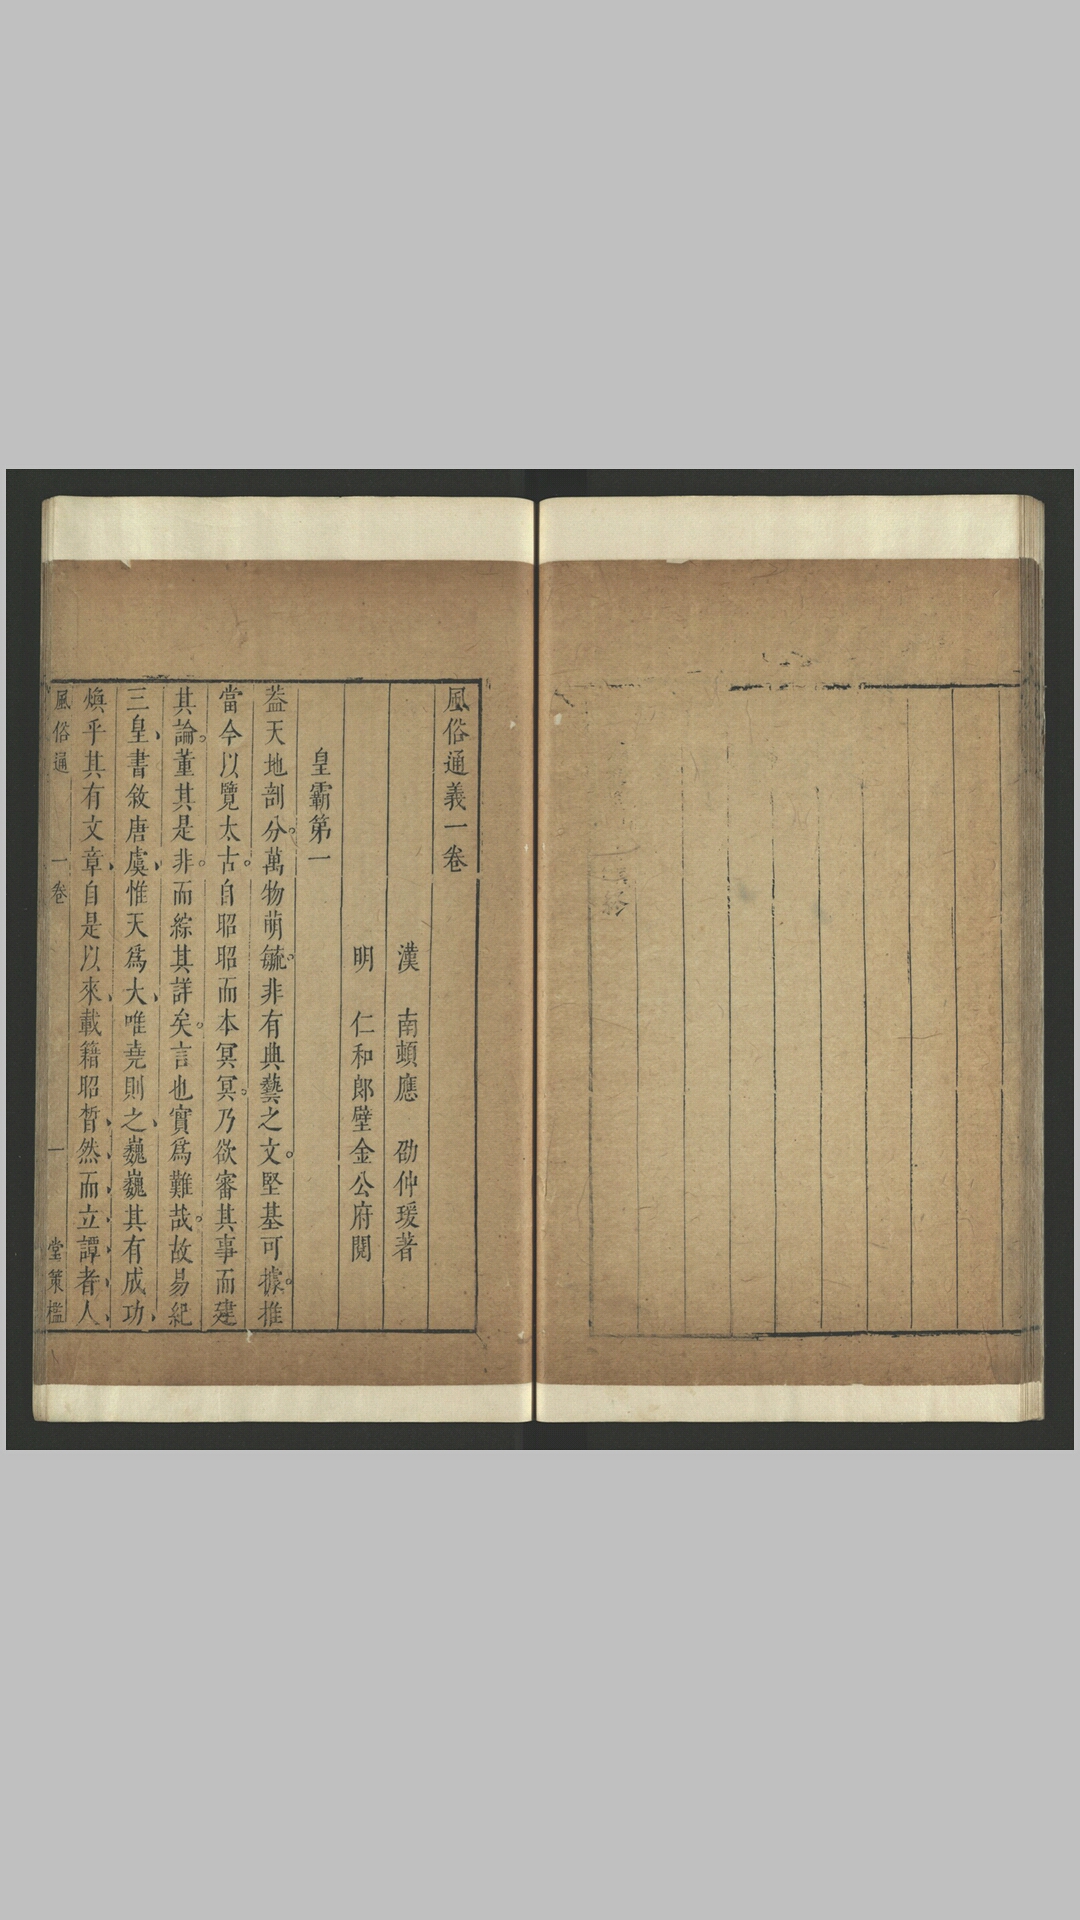 風俗通義一卷
漢　南頓應　劭仲瑗著
明　仁和郎壁金公府閱
皇霸第一
葢天地剖分。萬物萌毓。非有典藝之文。堅基可據。推
當今以覽太古。自昭昭而本冥冥。乃欲審其事而建
其論。董其是非。而綜其詳矣。言也實爲難哉。故易紀
三皇、書敘唐虞、惟天爲大、唯堯則之、巍巍其有成功、
煥乎其有文章、自是以來、載籍昭晳、然而立譚者人、
風俗通　一卷　一　堂策檻